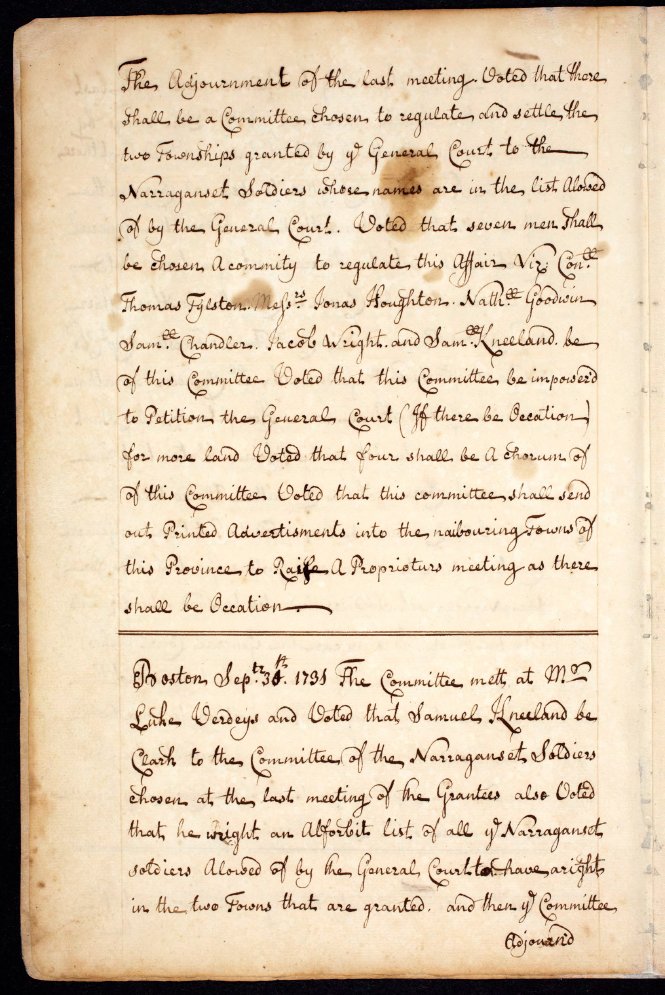 The Adjournment of the last meeting. Voted that there
shall be a Committee chosen to regulate and settle the
two Townships granted by ye General Court to the
Narraganset Soldiers whose names are in the list Alowed
of by the General Court. Voted that seven men shall
be chosen A commity to regulate this Affair Viz. Con.ll
Thomas Fylston. Messrs Jonas Houghton. Nath.ll Goodwin
Sam.ll Chandler. Jacob Wright. and Sam.ll Kneeland. be
of this Committee Voted that this Committee be impower'd
to Petition the General Court (If there be Occation)
for more land Voted that four shall be A chorum of
of this Committee Voted that this committee shall send
out Printed Advertisments into the naibouring Towns of
this Province to Raise A Proprioturs meeting as there
shall be Occation
Boston Sept.r 1731 The Committee mett at Mr
Luke Verdeys and Voted that Samuel Kneeland be
Clark to the Committee of the Narraganset Soldiers
chosen at the last meeting of the Grantees also Voted
that he wright an Alforbit list of all ye Narraganset
soldiers Alowed of by the General Court to have a right
in the two Towns that are granted. and then ye Committee
Adjournd